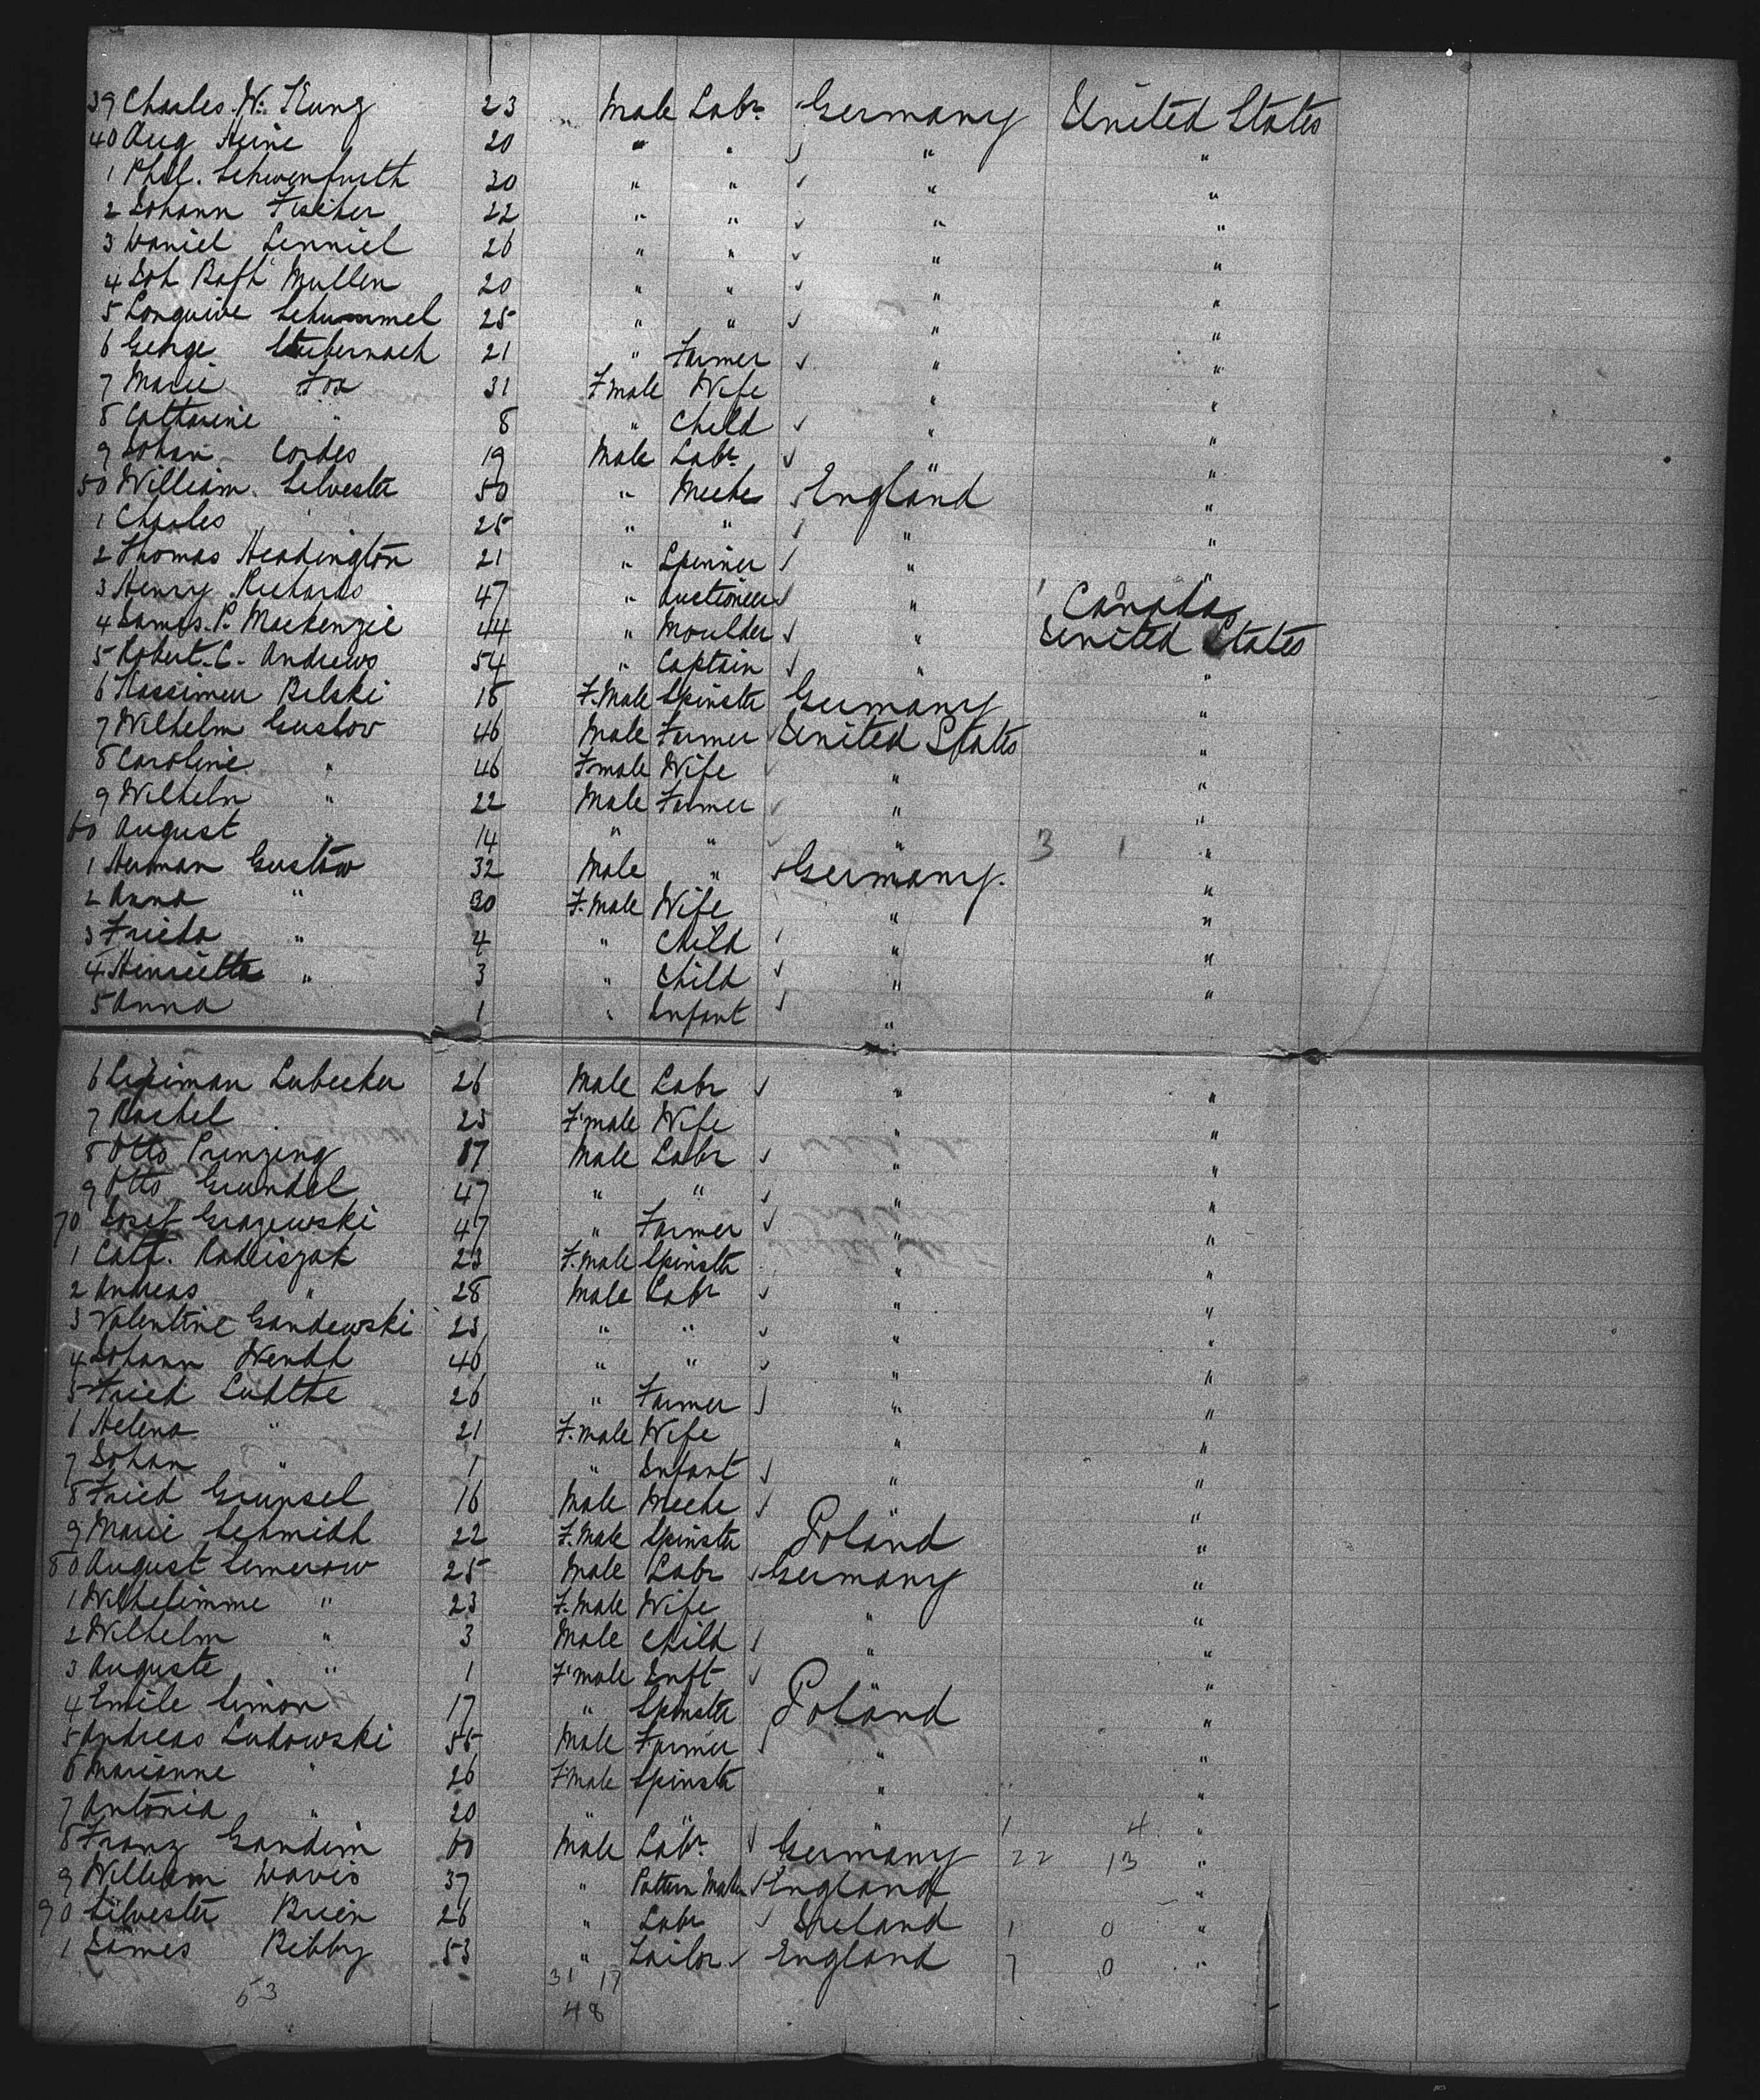 39 Charles W. Kung 23 " Male Labr Germany United States
40 Aug Heine 20 " " " "
1 Phil. Schwenfurth 30 " " " "
2 Johann Fischer 22 " " " "
3 Daniel 26 " " " "
4 Joh Bapt Mullen 20 " " " "
5 Schummel 25 " " " "
6 George 21 " Farmer " "
7 Marie Fox 31 F male Wife " "
8 Catharine " 8 " Child " "
9 Johan Cordes 19 Male Labr " "
50 William Silvester 50 " Mech England "
1 Charles " 25 " " " "
2 Thomas Headington 21 " Spinner " "
3 Henry Richards 47 " Auctioneer " Canada
4 James P. Mackenzie 44 " Moulder " United States
5 Robert C. Andrews 54 " Captain " "
6 Kassimeu Belski 18 F. Male Spinster Germany "
7 Wilhelm Gustav 46 Male Farmer United States "
8 Caroline " 46 F male Wife " "
9 Wilhelm " 22 Male Farmer " "
60 August 14 " " " 3 1 "
1 Herman Gustaw 32 Male " Germany. "
2 Anna " 30 F. Male Wife " "
3 Frieda " 4 " Child " "
4 Henrietta " 3 " Child " "
5 Anna 1 " Infant "
6 Lipiman Lubecker 26 Male Labr " "
7 Rachel 23 F male Wife " "
8 Otto Prinzing 17 Male Labr " "
9 Otto Grundel 47 " " " "
70 Josef Grazewski 47 " Farmer " "
1 Cath. Radeiszak 23 F. male Spinster " "
2 Andreas " 28 Male Labr " "
3 Valentine Gandewski 23 " " " "
4 Johann Wendt 40 " " " "
5 Fried Luhtke 26 " Farmer " "
6 Helena " 21 F. male Wife " "
7 Johan " 1 " Infant " "
8 Fried Grunsel 16 Male Meche " "
9 Marie Schmidt 22 F. Male Spinster Poland "
80 August Semerow 25 Male Labr Germany "
1 Wilhelimme " 23 F. Male Wife " "
2 Wilhelm " 3 Male Child " "
3 Auguste " 1 F male Inft "
4 Emile Simon 17 " Spinster Poland "
5 Andreas Ludowski 55 Male Farmer " "
6 Marianne " 26 F Male Spinster " "
7 Antonia " 20 " " 1 4 "
8 Franz Gandim 60 Male Labr Germany 22 13 "
9 William Davis 37 " Pattern Maker England "
90 Silvester Brien 26 " Labr Ireland 1 0 "
1 James Bibby 53 " Tailor England 7 0 "
53 31 17
48